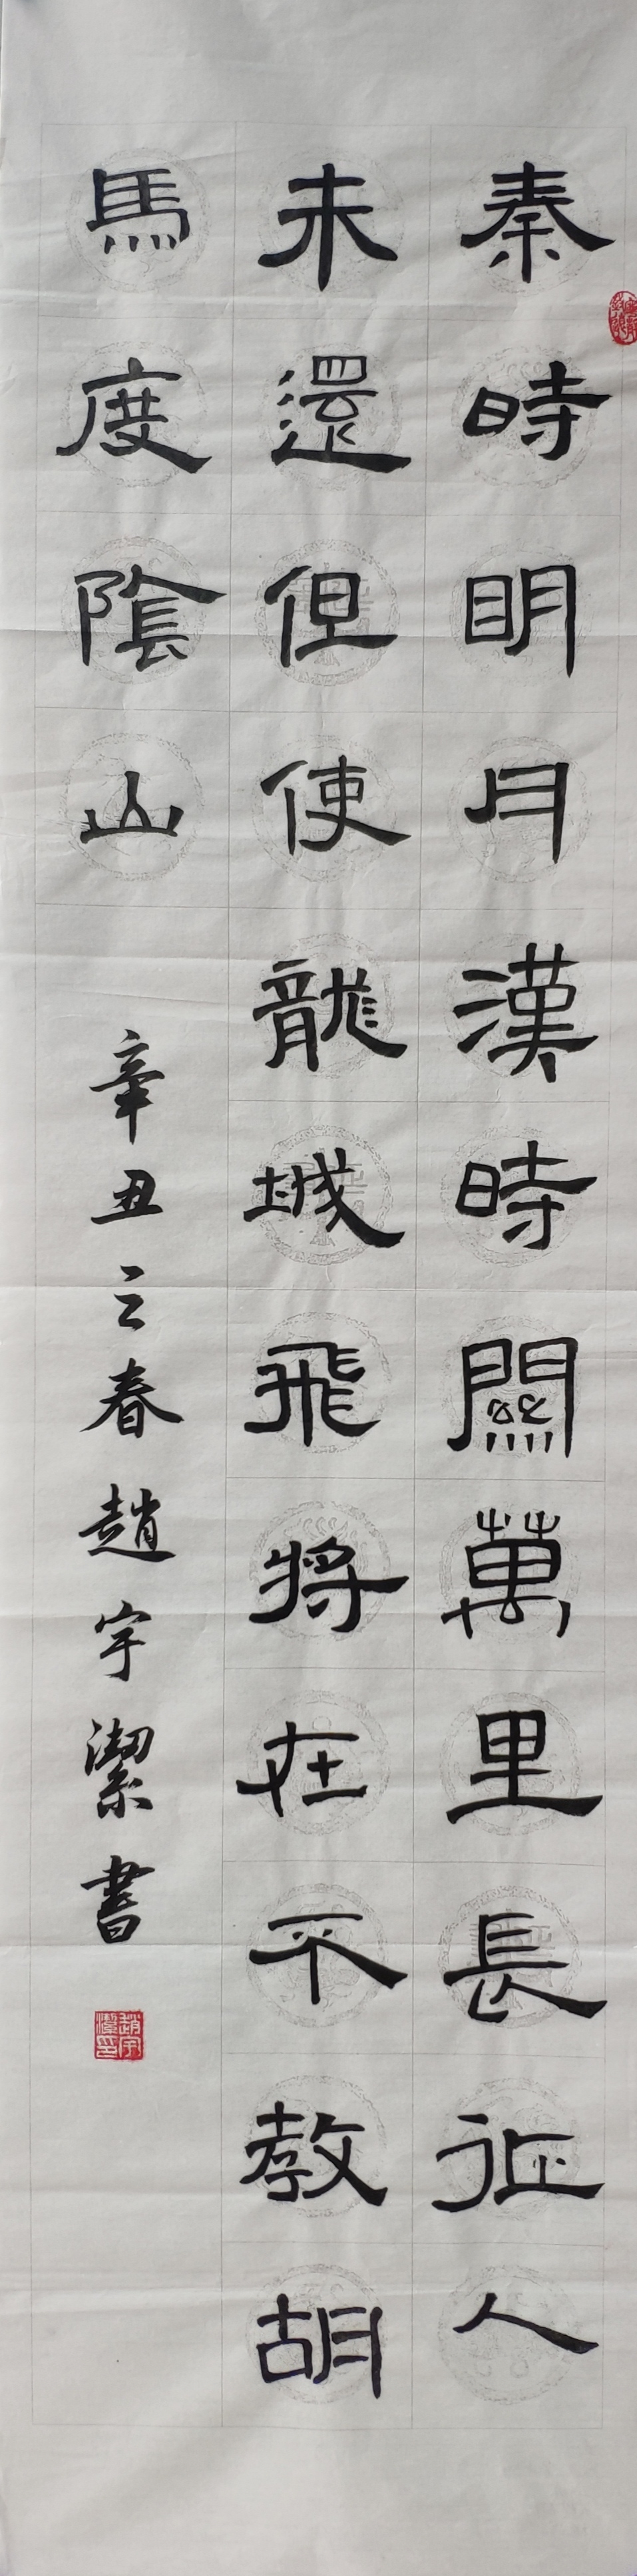 秦時明月漢時關萬里長征人
未還但使龍城飛將在不教胡
馬度陰山
辛丑之春趙宇潔書
趙宇潔印